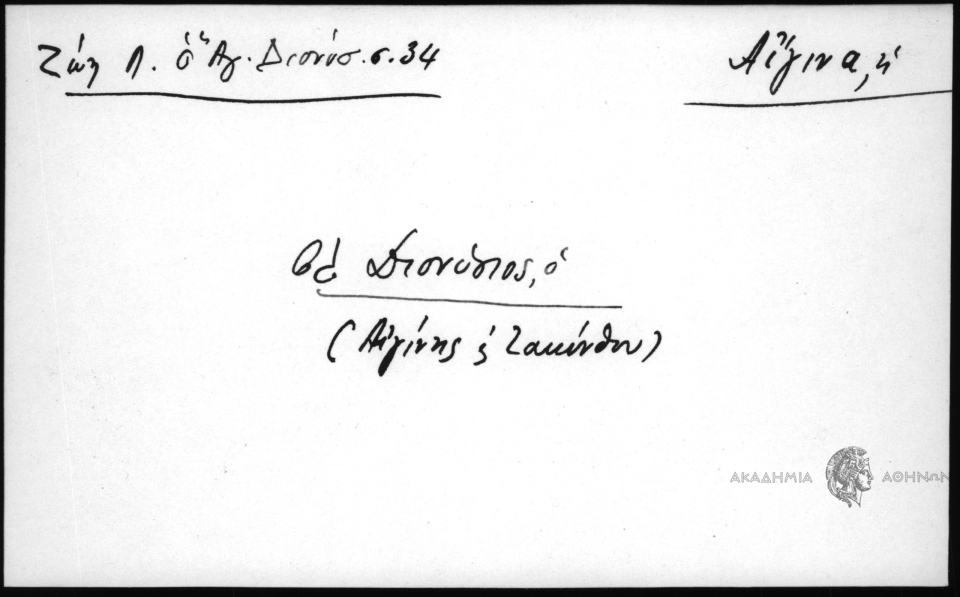 Ζώη Λ. ὁ Ἅγ. Διονύσ. σ. 34
Αἴγινα, ἡ
βλ Διονύσιος, ὁ
(Αἰγίνης ἐξ Ζακύνθου)
ΑΚΑΔΗΜΙΑ ΑΘΗΝΩΝ